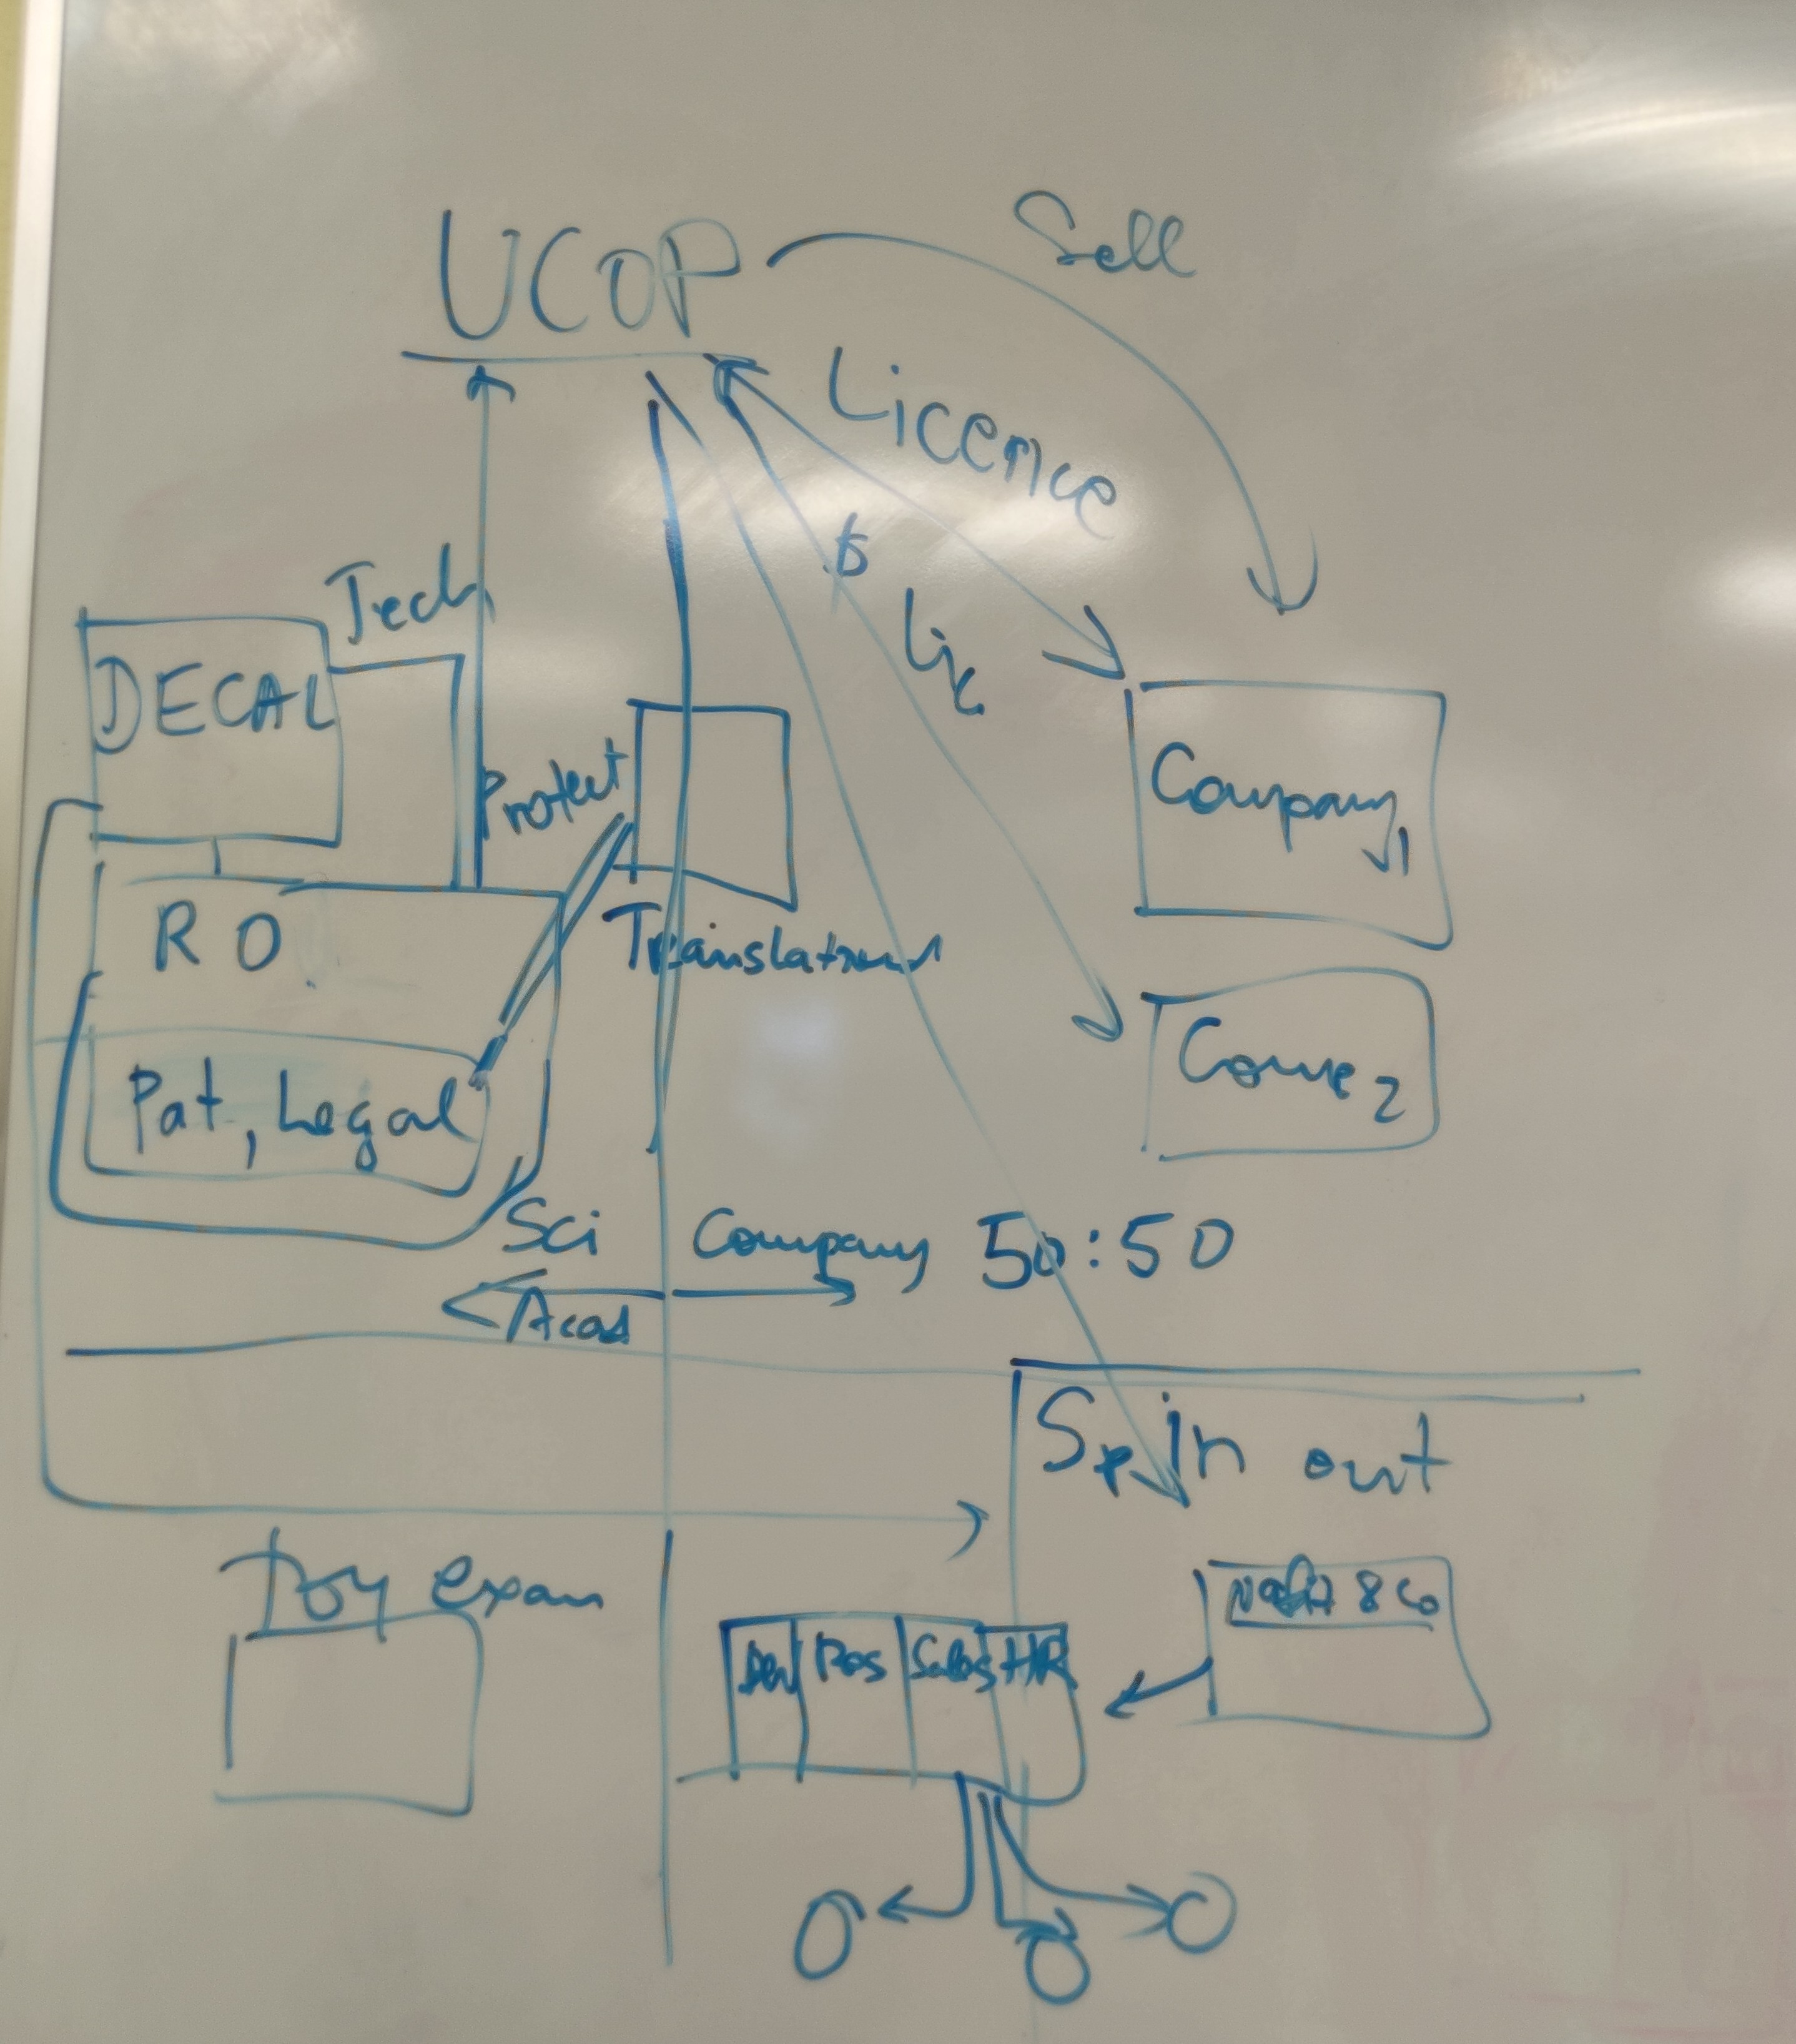 UCOP
Sell
Licence
$
Lic
Tech
DECAL
Protect
Company 1
RO
Translational
Pat, Legal
Sci
Company 50:50
Acad
Spin out
Toy exam
& Co
Dev
Res
Sales
HR